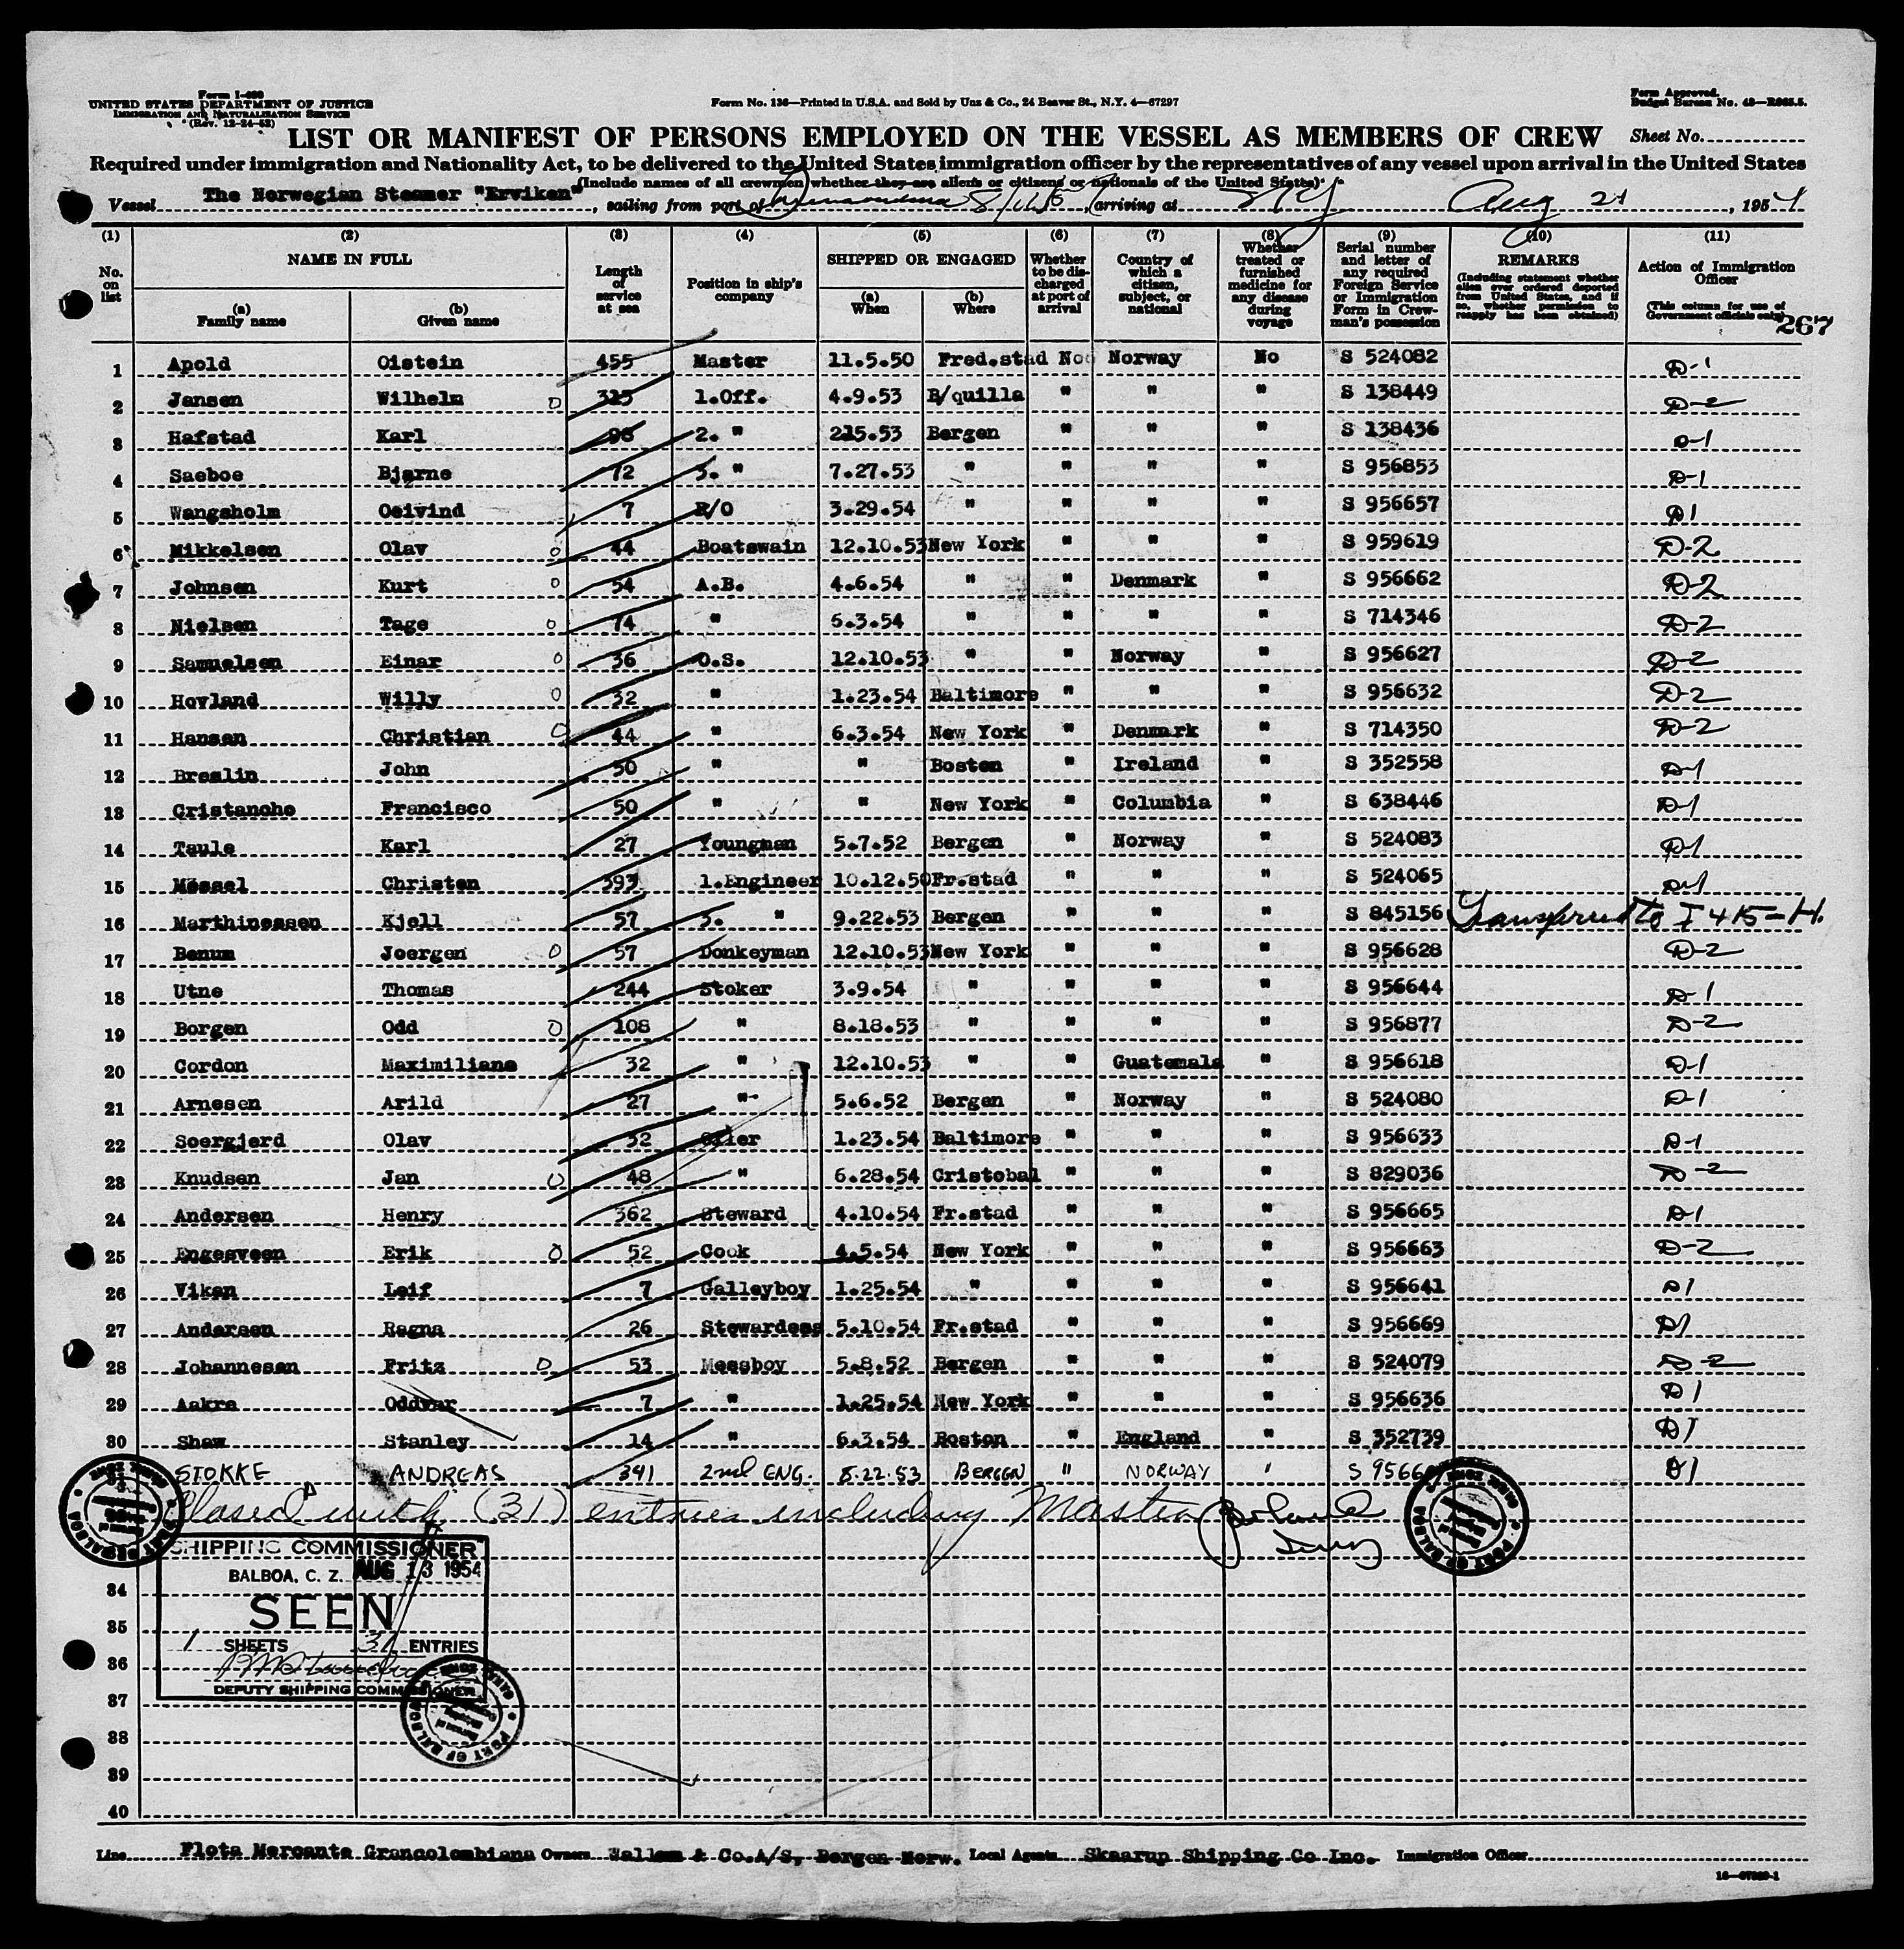 Form I-480
UNITED STATES DEPARTMENT OF JUSTICE
IMMIGRATION AND NATURALIZATION SERVICE
(Rev. 12-24-52)
Form No. 136—Printed in U.S.A. and Sold by Unz & Co., 24 Beaver St., N.Y. 4—67297
Form Approved.
Budget Bureau No. 43—R065.5.
LIST OR MANIFEST OF PERSONS EMPLOYED ON THE VESSEL AS MEMBERS OF CREW Sheet No.
Required under immigration and Nationality Act, to be delivered to the United States immigration officer by the representatives of any vessel upon arrival in the United States
(Include names of all crewmen whether they are aliens or citizens or nationals of the United States)
Vessel The Norwegian Steamer "Erviken", sailing from port of , arriving at N Y Aug 21, 1954
(1) (2) (3) (4) (5) (6) (7) (8) (9) (10) (11)
No. on list NAME IN FULL (a) Family name (b) Given name Length of service at sea Position in ship's company SHIPPED OR ENGAGED (a) When (b) Where Whether to be discharged at port of arrival Country of which a citizen, subject, or national Whether treated or furnished medicine for any disease during voyage Serial number and letter of any required Foreign Service or Immigration Form in Crewman's possession REMARKS (Including statement whether alien ever ordered deported from United States, and if so, whether permission to reapply has been obtained) Action of Immigration Officer (This column for use of Government officials only)
267
1 Apold Oistein 455 Master 11.5.50 Fred.stad No Norway No S 524082 D-1
2 Jansen Wilhelm 315 1.Off. 4.9.53 B/quilla " " " S 138449 D-2
3 Hafstad Karl 98 2. " 215.53 Bergen " " " S 138436 D-1
4 Saeboe Bjarne 72 3. " 7.27.53 " " " " S 956853 D-1
5 Wangsholm Oeivind 7 R/O 3.29.54 " " " " S 956657 D1
6 Mikkelsen Olav 44 Boatswain 12.10.53 New York " " " S 959619 D-2
7 Johnsen Kurt 54 A.B. 4.6.54 " " Denmark " S 956662 D-2
8 Nielsen Tage 74 " 6.3.54 " " " " S 714346 D-2
9 Samuelsen Einar 36 O.S. 12.10.53 " " Norway " S 956627 D-2
10 Hovland Willy 32 " 1.23.54 Baltimore " " " S 956632 D-2
11 Hansen Christian 44 " 6.3.54 New York " Denmark " S 714350 D-2
12 Breslin John 50 " " Boston " Ireland " S 352558 D-1
13 Cristancho Francisco 50 " " New York " Columbia " S 638446 D-1
14 Taule Karl 27 Youngman 5.7.52 Bergen " Norway " S 524083 D1
15 Messel Christen 393 1.Engineer 10.12.50 Fr.stad " " " S 524065 D-1
16 Marthinessen Kjell 57 3. " 9.22.53 Bergen " " " S 845156 Transferred to I 415-H.
17 Benum Joergen 57 Donkeyman 12.10.53 New York " " " S 956628 D-2
18 Utne Thomas 244 Stoker 3.9.54 " " " " S 956644 D-1
19 Borgen Odd 108 " 8.18.53 " " " " S 956877 D-2
20 Cordon Maximiliano 32 " 12.10.53 " " Guatemala " S 956618 D-1
21 Arnesen Arild 27 " 5.6.52 Bergen " Norway " S 524080 D-1
22 Soergjerd Olav 32 Oiler 1.23.54 Baltimore " " " S 956633 D-1
23 Knudsen Jan 48 " 6.28.54 Cristobal " " " S 829036 D-2
24 Andersen Henry 362 Steward 4.10.54 Fr.stad " " " S 956665 D-1
25 Engesveen Erik 52 Cook 4.5.54 New York " " " S 956663 D-2
26 Vikan Leif 7 Galleyboy 1.25.54 " " " " S 956641 D1
27 Andersen Ragna 26 Stewardess 5.10.54 Fr.stad " " " S 956669 D1
28 Johannesen Fritz 53 Messboy 5.8.52 Bergen " " " S 524079 D-2
29 Aakre Oddvar 7 " 1.25.54 New York " " " S 956636 D1
30 Shaw Stanley 14 " 6.3.54 Boston " England " S 352739 D1
STOKKE ANDREAS 341 2nd ENG. 8.22.53 BERGEN " NORWAY " S 9566 D1
Closed with (31) entries including Master
SHIPPING COMMISSIONER
BALBOA, C. Z. AUG 13 1954
SEEN
1 SHEETS 31 ENTRIES
DEPUTY SHIPPING COMMISSIONER
PORT OF BALBOA
PORT OF BALBOA
PORT OF BALBOA
34
35
36
37
38
39
40
Line Flota Mercante Grancolombiana Owners Wallem & Co.A/S, Bergen Norw. Local Agents Skaarup Shipping Co Inc. Immigration Officer